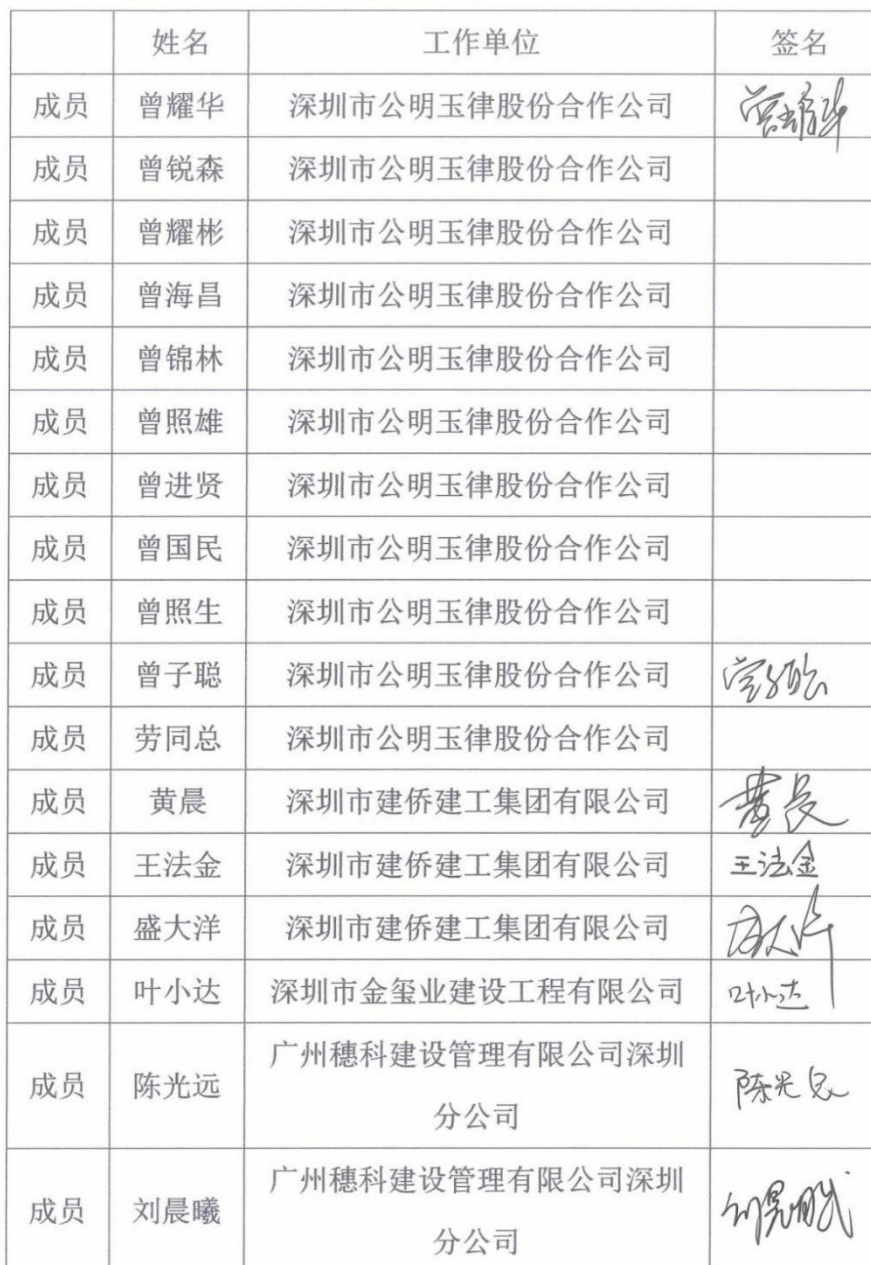 姓名 工作单位 签名
成员 曾耀华 深圳市公明玉律股份合作公司 曾耀华
成员 曾锐森 深圳市公明玉律股份合作公司
成员 曾耀彬 深圳市公明玉律股份合作公司
成员 曾海昌 深圳市公明玉律股份合作公司
成员 曾锦林 深圳市公明玉律股份合作公司
成员 曾照雄 深圳市公明玉律股份合作公司
成员 曾进贤 深圳市公明玉律股份合作公司
成员 曾国民 深圳市公明玉律股份合作公司
成员 曾照生 深圳市公明玉律股份合作公司
成员 曾子聪 深圳市公明玉律股份合作公司 曾子聪
成员 劳同总 深圳市公明玉律股份合作公司
成员 黄晨 深圳市建侨建工集团有限公司 黄晨
成员 王法金 深圳市建侨建工集团有限公司 王法金
成员 盛大洋 深圳市建侨建工集团有限公司 盛大洋
成员 叶小达 深圳市金玺业建设工程有限公司 叶小达
成员 陈光远 广州穗科建设管理有限公司深圳
分公司 陈光远
成员 刘晨曦 广州穗科建设管理有限公司深圳
分公司